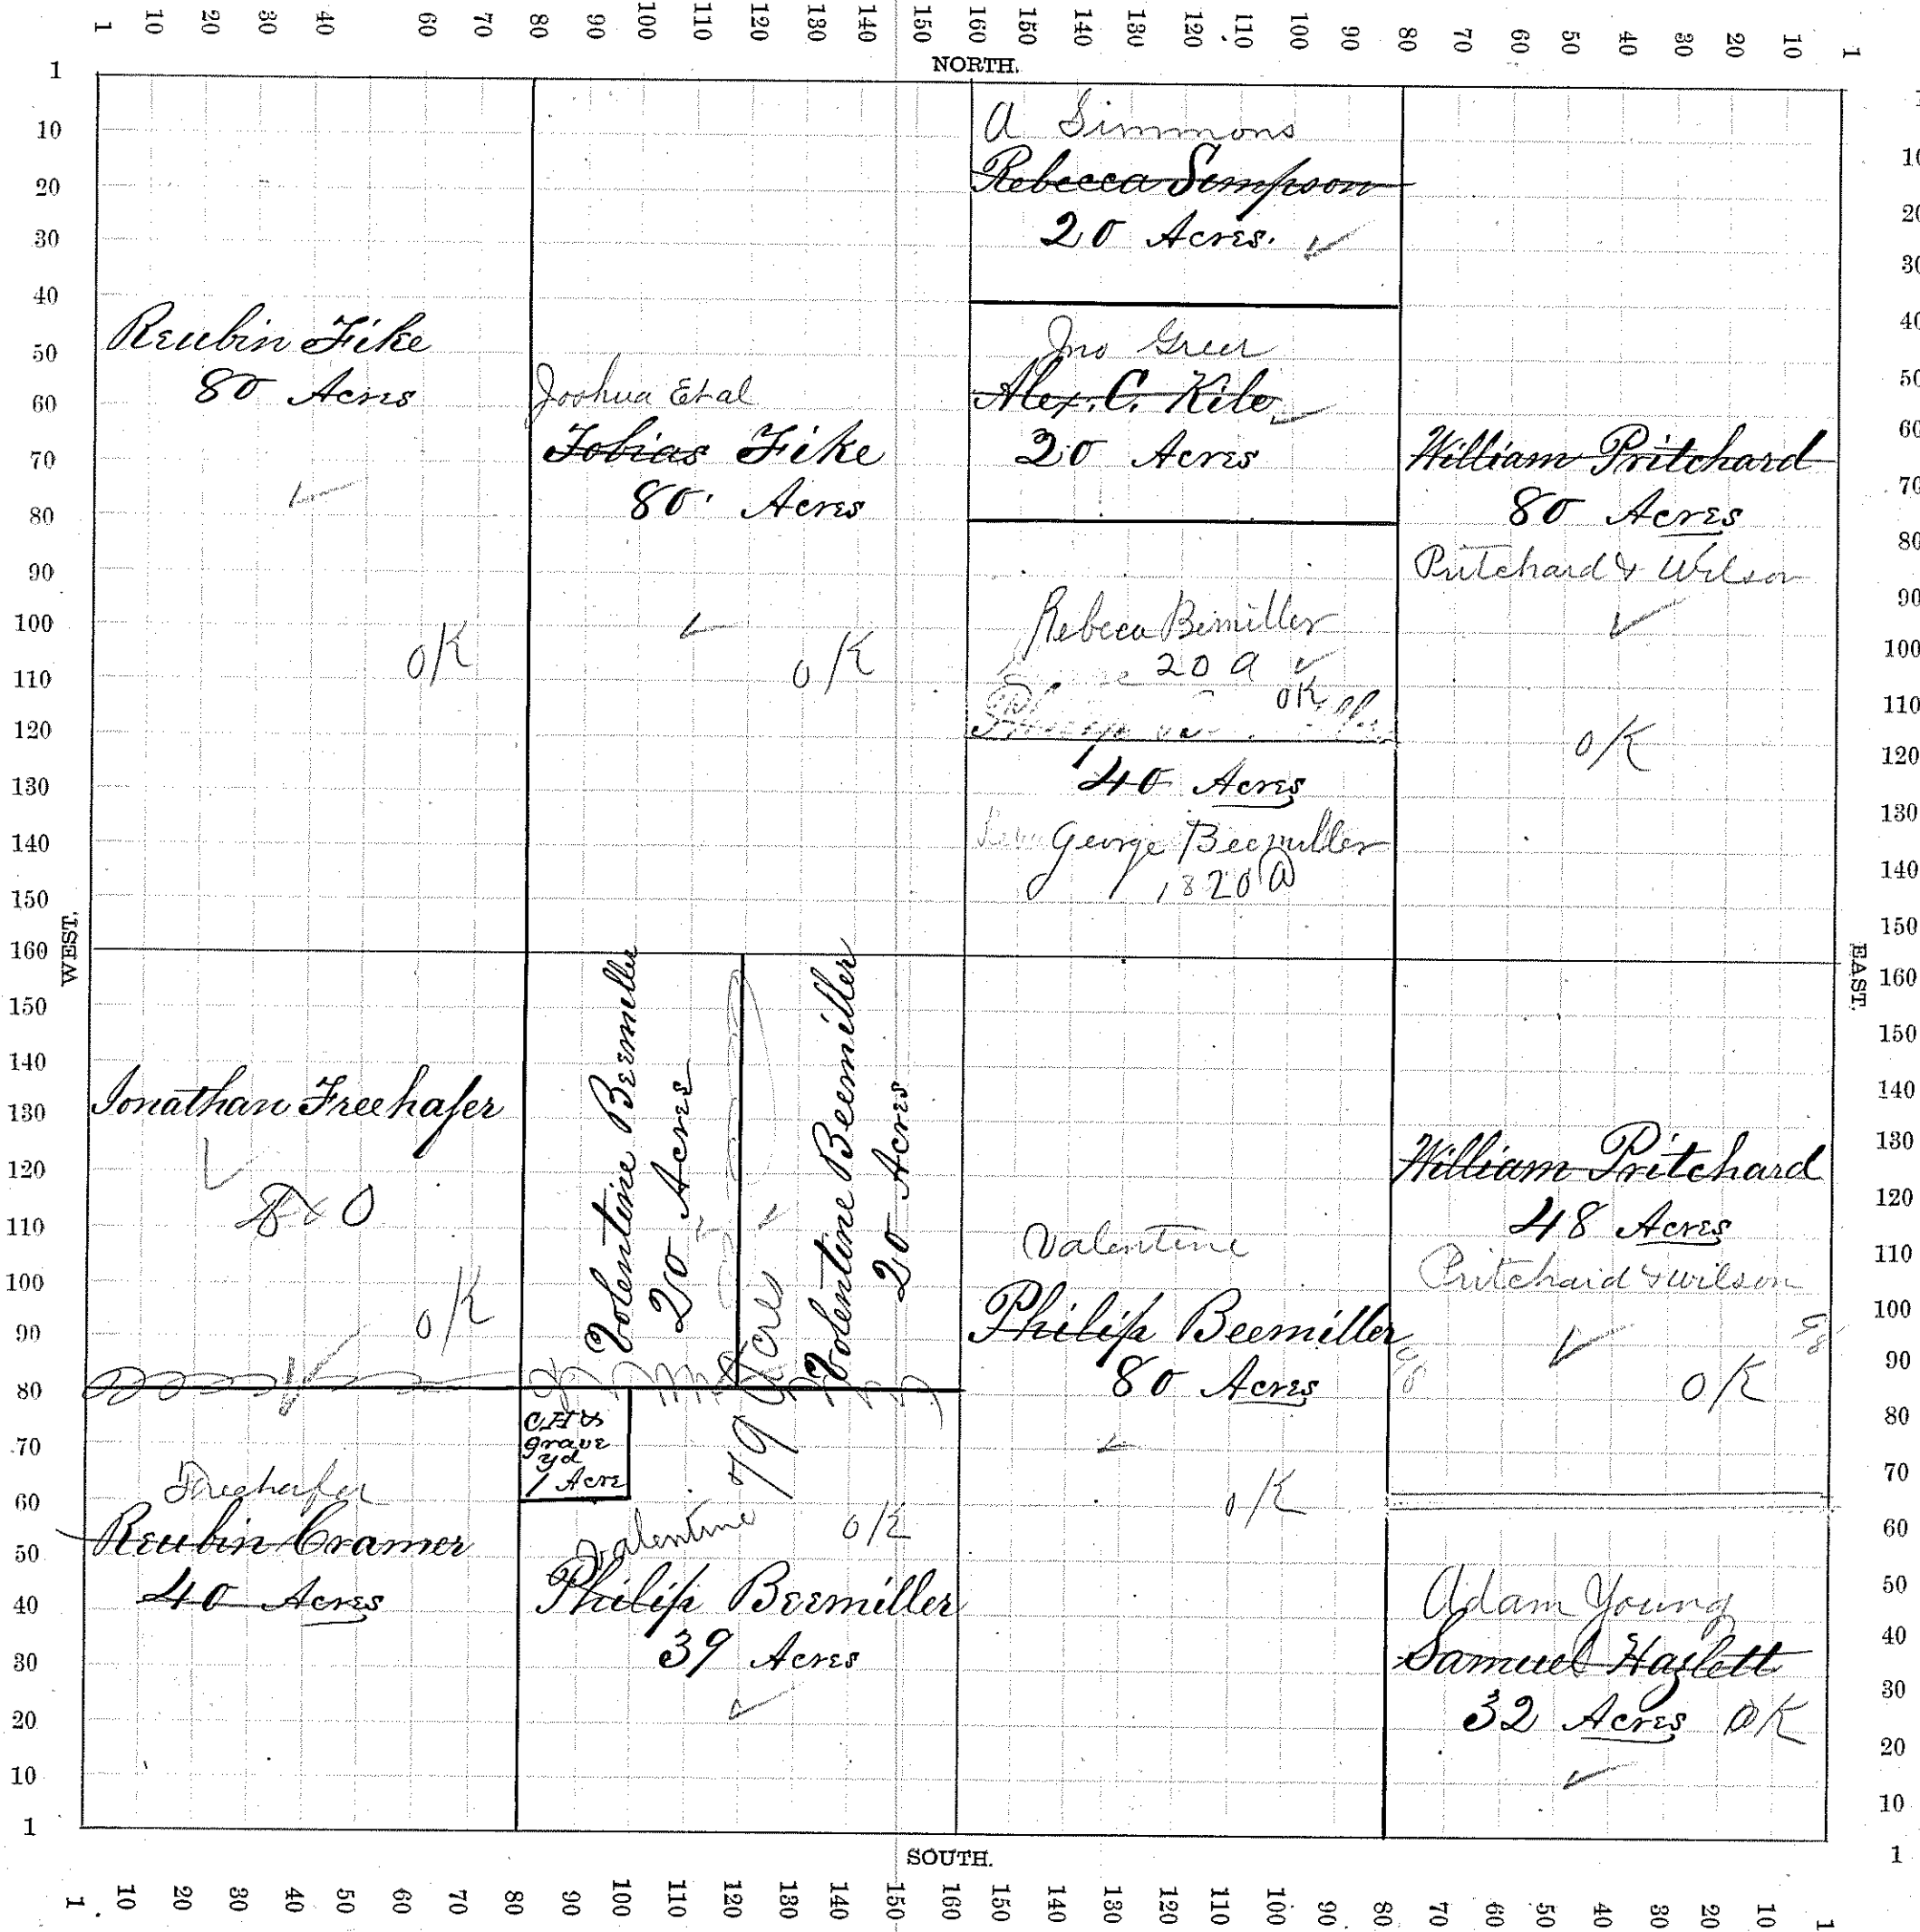 1 10 20 30 40 60 70 80 90 100 110 120 130 140 150 160 150 140 130 120 110 100 90 80 70 60 50 40 30 20 10 1
NORTH.
1
10
20
30
40
50
60
70
80
90
100
110
120
130
140
150
160
150
140
130
120
110
100
90
80
70
60
50
40
30
20
10
1
WEST.
Reubin Fike
80 Acres
O/K
Joshua Etal
Tobias Fike
80 Acres
O/K
A Simmons
Rebecca Simpson
20 Acres.
Jno Greer
Alex. C. Kile
20 Acres
Rebeca Bemiller
20 A
OK
40 Acres
George Beemiller
20 A
William Pritchard
80 Acres
Pritchard & Wilson
O/K
Jonathan Freehafer
O/K
Volentine Beemiller
20 Acres
Volentine Beemiller
20 Acres
79 Acres
Valentine
Philip Beemiller
80 Acres
O/K
William Pritchard
48 Acres
Pritchard & Wilson
O/K
Freehafer
Reubin Cramer
40 Acres
CH &
grave
yd
1 Acre
Valentine
O/K
Philip Beemiller
39 Acres
Adam Young
Samuel Hazlett
32 Acres OK
EAST.
10
20
30
40
50
60
70
80
90
100
110
120
130
140
150
160
150
140
130
120
110
100
90
80
70
60
50
40
30
20
10
1
SOUTH.
1 10 20 30 40 50 60 70 80 90 100 110 120 130 140 150 160 150 140 130 120 110 100 90 80 70 60 50 40 30 20 10 1